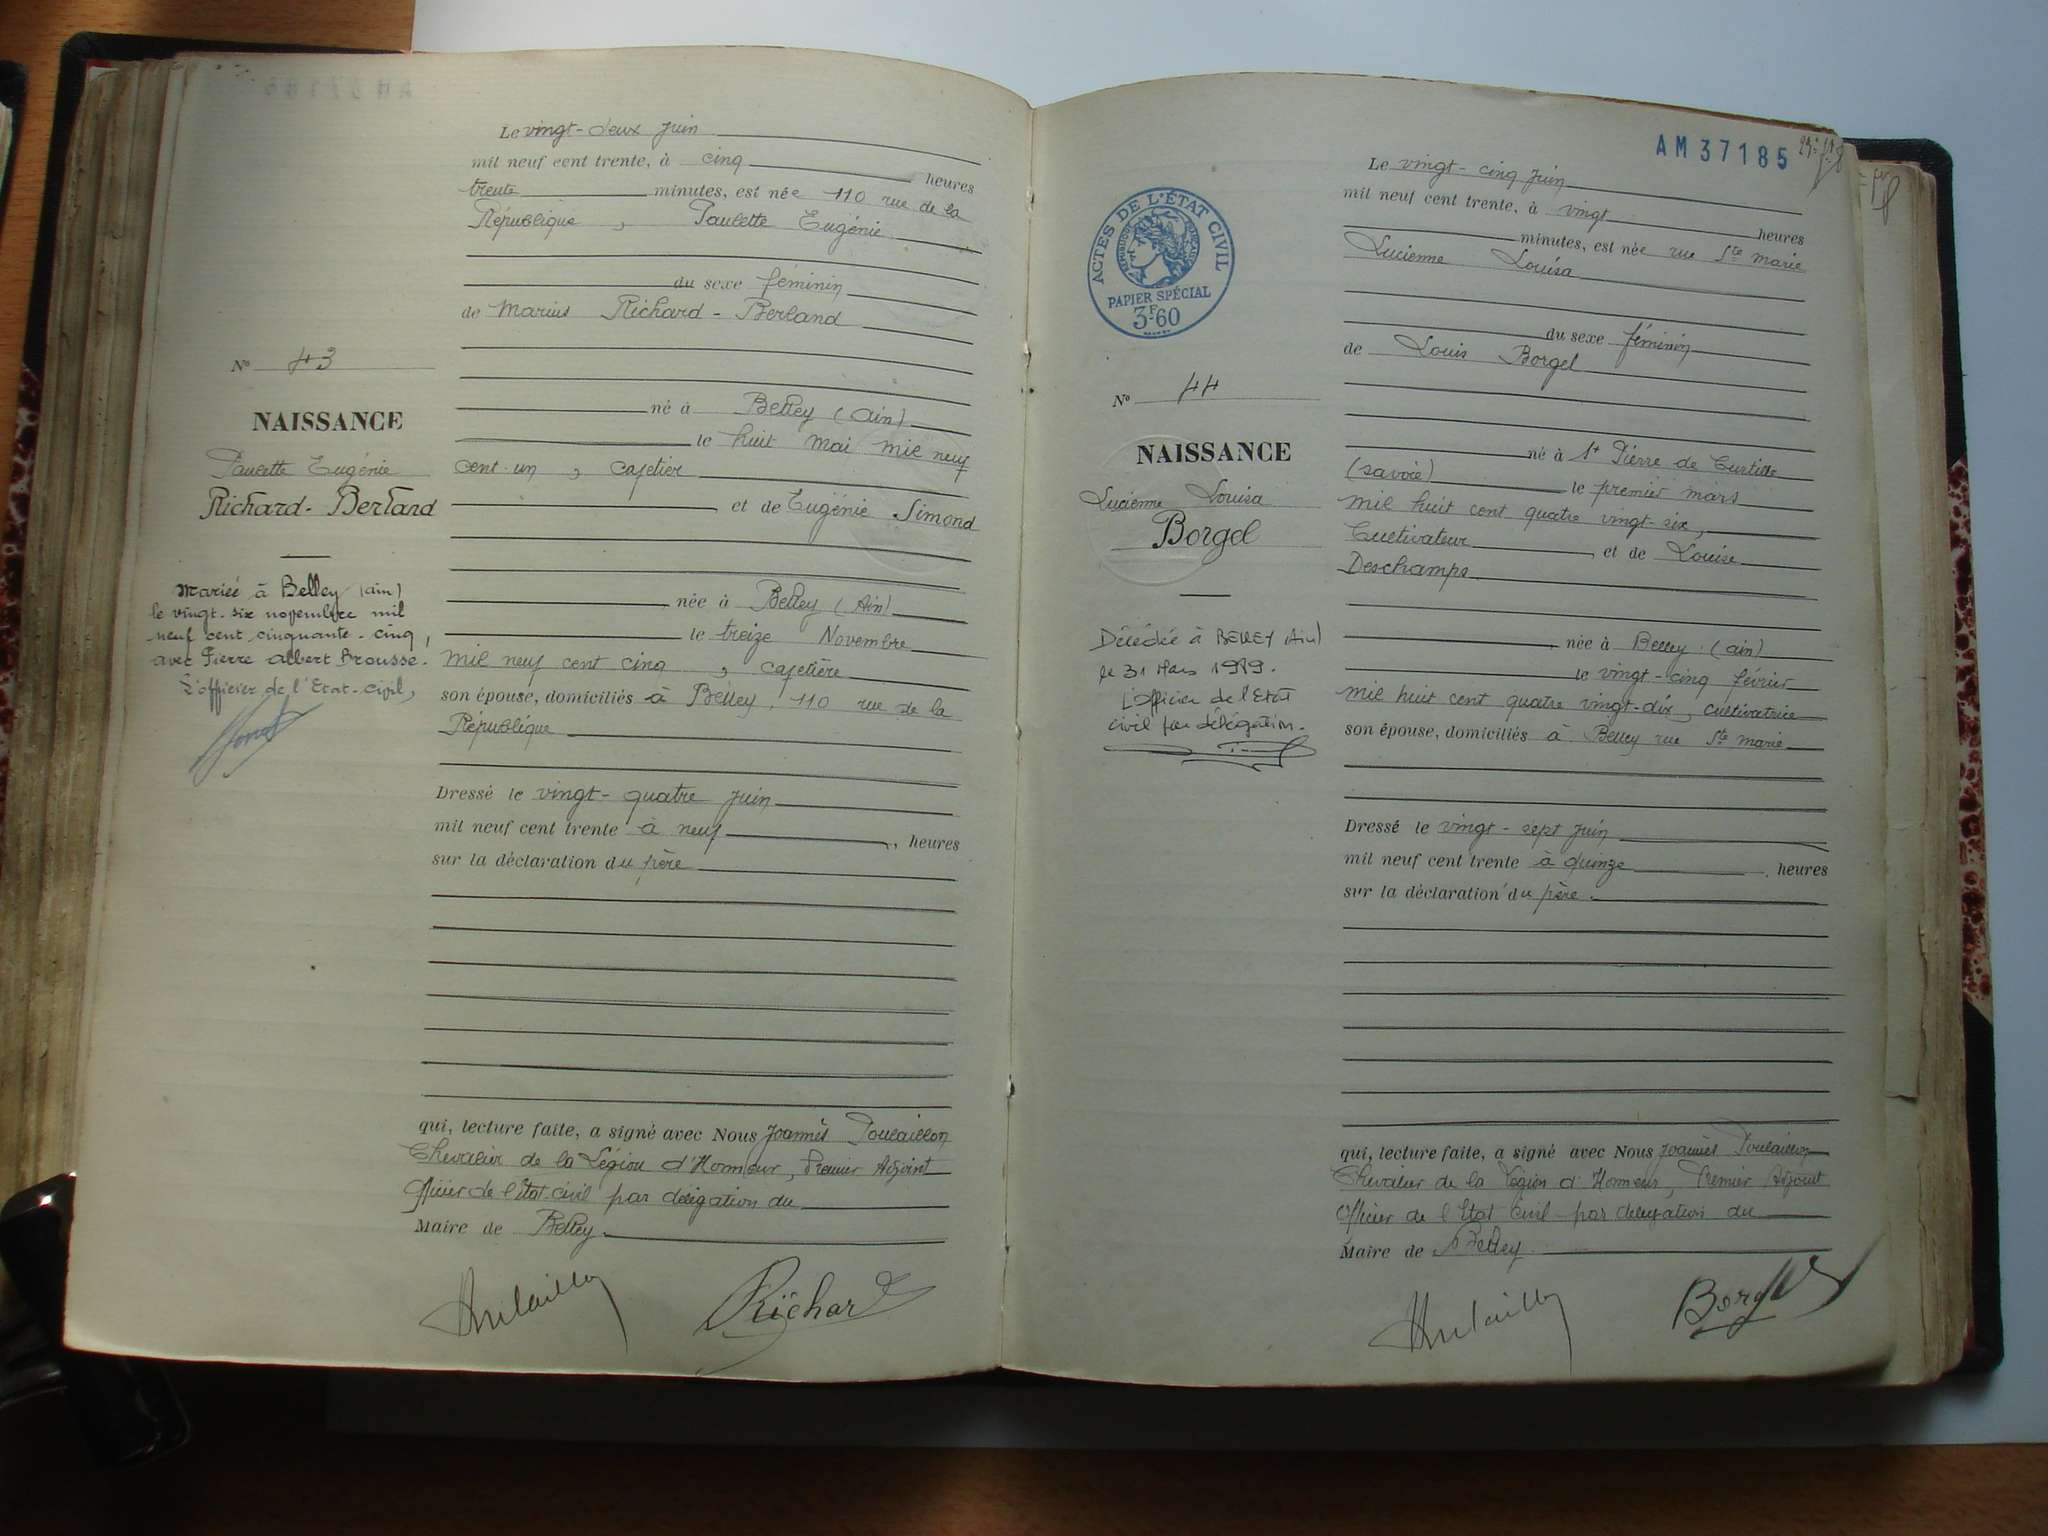 Le vingt-deux juin
mil neuf cent trente, à cinq heures
trente minutes, est née 110 rue de la
République, Paulette Eugénie
du sexe féminin
de Marius Richard-Berland
né à Belley (Ain)
le huit mai mil neuf
cent-un, cafetier
et de Eugénie Simond
née à Belley (Ain)
le treize Novembre
mil neuf cent cinq, cafetière
son épouse, domiciliés à Belley, 110 rue de la
République
Dressé le vingt-quatre juin
mil neuf cent trente à neuf, heures
sur la déclaration du père
qui, lecture faite, a signé avec Nous Joannès Poulaillon
Chevalier de la Légion d'Honneur, Premier Adjoint
Officier de l'Etat-civil par délégation du
Maire de Belley.
Richard
N° 43
NAISSANCE
Paulette Eugénie
Richard-Berland
Mariée à Belley (ain)
le vingt-six novembre mil
neuf cent cinquante-cinq,
avec Pierre Albert Brousse.
L'officier de l'Etat-civil,
AM 37185
Le vingt-cinq juin
mil neuf cent trente, à vingt heures
minutes, est née rue Ste marie
Lucienne Louisa
du sexe féminin
de Louis Borgel
né à St Pierre de Curtille
(savoie) le premier mars
mil huit cent quatre vingt-six,
Cultivateur, et de Louise
Deschamps
née à Belley (ain)
le vingt-cinq février
mil huit cent quatre vingt-dix, cultivatrice
son épouse, domiciliés à Belley rue Ste marie
Dressé le vingt-sept juin
mil neuf cent trente à quinze, heures
sur la déclaration du père.
qui, lecture faite, a signé avec Nous Joannès Poulaillon
Chevalier de la Légion d'Honneur, Premier Adjoint
Officier de l'Etat Civil par délégation du
Maire de Belley.
Borgel
ACTES DE L'ÉTAT CIVIL
RÉPUBLIQUE FRANÇAISE
PAPIER SPÉCIAL
3F60
N° 44
NAISSANCE
Lucienne Louisa
Borgel
Décédée à BELLEY (Ain)
le 31 Mars 1989.
L'Officier de l'Etat
civil par délégation.